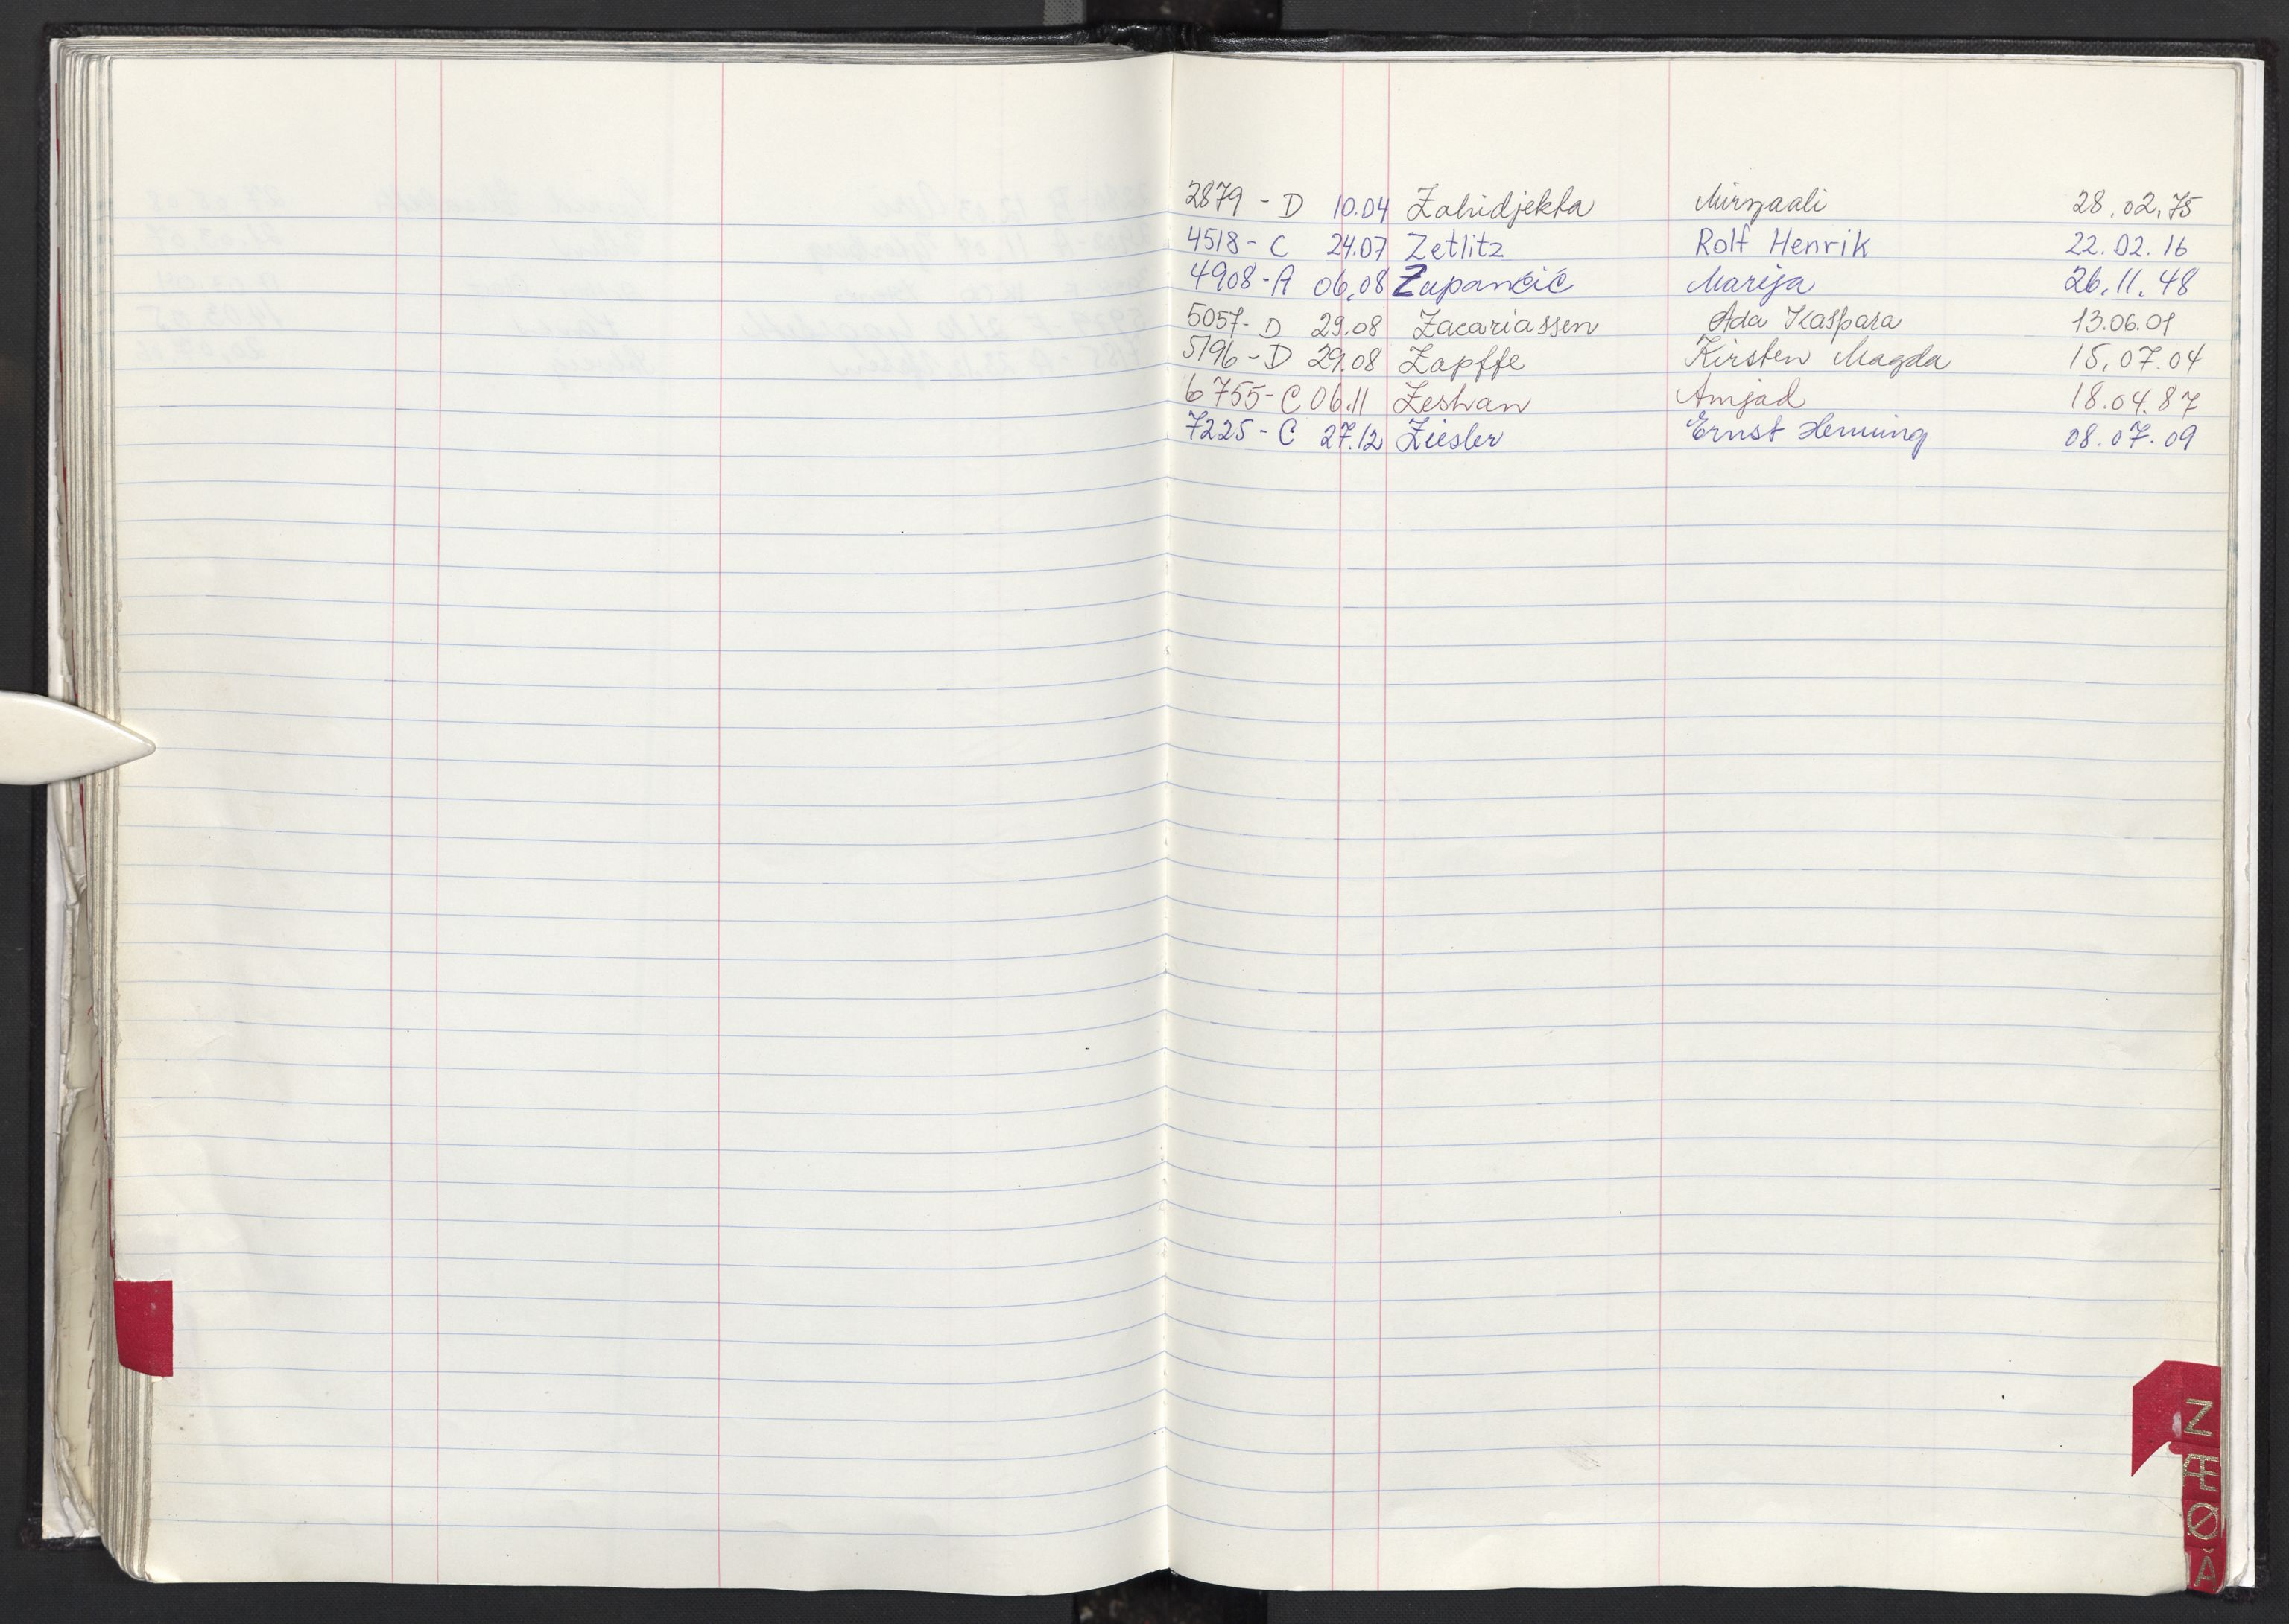 2879 - D 10.04 Zahidjekta Mirzaali 28.02.75
4518 - C 24.07 Zetlitz Rolf Henrik 22.02.16
4908 - A 06,08 Zupančić Marija 26.11.48
5057- D 29.08 Zacariassen Ada Kaspara 13.06.01
5196 - D 29.08 Zapffe Kirsten Magda 15.07.04
6755 - C 06.11 Zeshan Amjad 18.04.87
7225 - C 27.12 Ziesler Ernst Henning 08.07.09
Z
Æ
Ø
Å